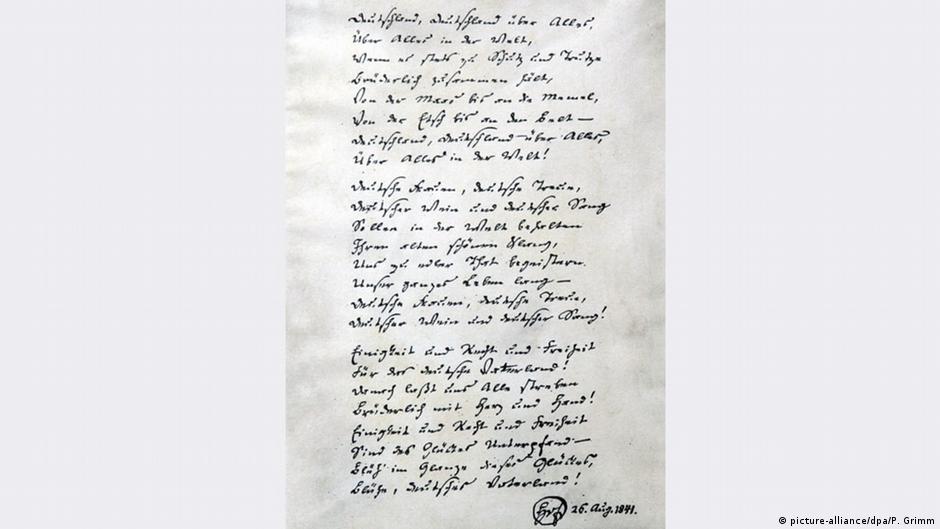 Deutschland, Deutschland über Alles,
Über Alles in der Welt,
Wenn es stets zu Schutz und Trutze
Brüderlich zusammen hält,
Von der Maas bis an die Memel,
Von der Etsch bis an den Belt –
Deutschland, Deutschland über Alles,
Über Alles in der Welt!
Deutsche Frauen, deutsche Treue,
Deutscher Wein und deutscher Sang
Sollen in der Welt behalten
Ihren alten schönen Klang,
Uns zu edler That begeistern
Unser ganzes Leben lang –
Deutsche Frauen, deutsche Treue,
Deutscher Wein und deutscher Sang!
Einigkeit und Recht und Freiheit
Für das deutsche Vaterland!
Danach laßt uns Alle streben
Brüderlich mit Herz und Hand!
Einigkeit und Recht und Freiheit
Sind des Glückes Unterpfand –
Blüh' im Glanze dieses Glückes,
Blühe, deutsches Vaterland!
26. Aug. 1841.
© picture-alliance/dpa/P. Grimm